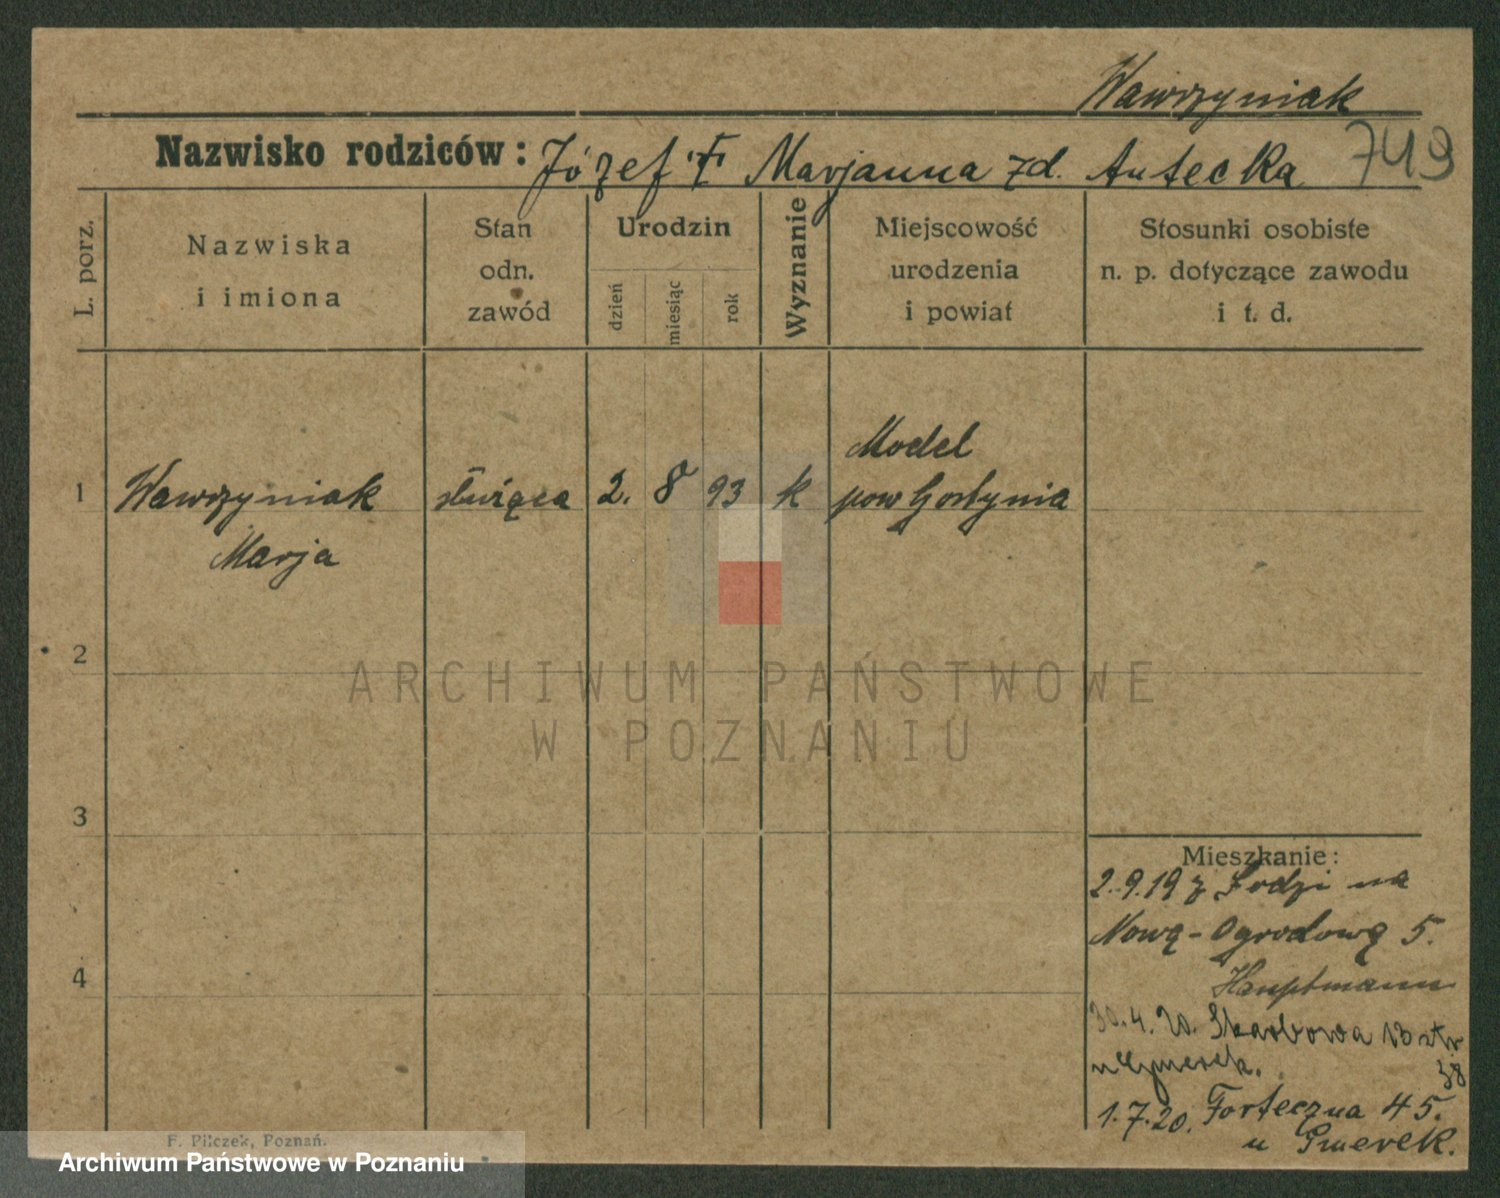 Wawrzyniak
Nazwisko rodziców: Józef F Marjanna zd. Antecka 749
L. porz.
Nazwiska
i imiona
Stan
odn.
zawód
Urodzin
dzień
miesiąc
rok
Wyznanie
Miejscowość
urodzenia
i powiat
Stosunki osobiste
n. p. dotyczące zawodu
i t. d.
Model
1 Wawrzyniak służąca 2. 8 93 k pow Gostynia
Marja
2
ARCHIWUM PAŃSTWOWE
W POZNANIU
3
4
Mieszkanie:
2.9.19 z Łodzi na
Nową-Ogrodową 5.
Hauptmann
30.4.20. Skarbowa 13 str
38
1.7.20. Forteczna 45.
u Gmerek.
F. Pilczek, Poznań.
Archiwum Państwowe w Poznaniu